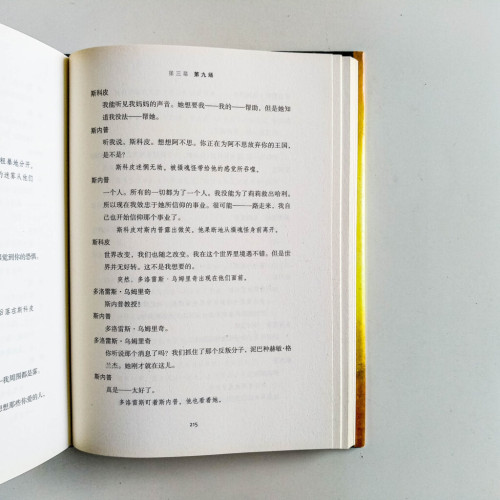 租暴地分开,
的迷雾从他们
感觉到你的恐惧,
后落在斯科皮
—我周围都是雾。
想想那些你爱的人,
第三幕 第九场
斯科皮
我能听见我妈妈的声音。她想要我——我的——帮助,但是她知
道我没法——帮她。
斯内普
听我说,斯科皮。想想阿不思。你正在为阿不思放弃你的王国,
是不是?
斯科皮迷惘无助。被摄魂怪带给他的感觉所吞噬。
斯内普
一个人。所有的一切都为了一个人。我没能为了莉莉救出哈利。
所以现在我效忠于她所信仰的事业。很可能——一路走来,我自
己也开始信仰那个事业了。
斯科皮对斯内普露出微笑。他果断地从摄魂怪身前离开。
斯科皮
世界改变,我们也随之改变。我在这个世界里境遇不错。但是世
界并无好转。这不是我想要的。
突然,多洛雷斯·乌姆里奇出现在他们面前。
多洛雷斯·乌姆里奇
斯内普教授!
斯内普
多洛雷斯·乌姆里奇。
多洛雷斯·乌姆里奇
你听说那个消息了吗?我们抓住了那个反叛分子,泥巴种赫敏·格
兰杰。她刚才就在这儿。
斯内普
真是——太好了。
多洛雷斯盯着斯内普。他也看着她。
215